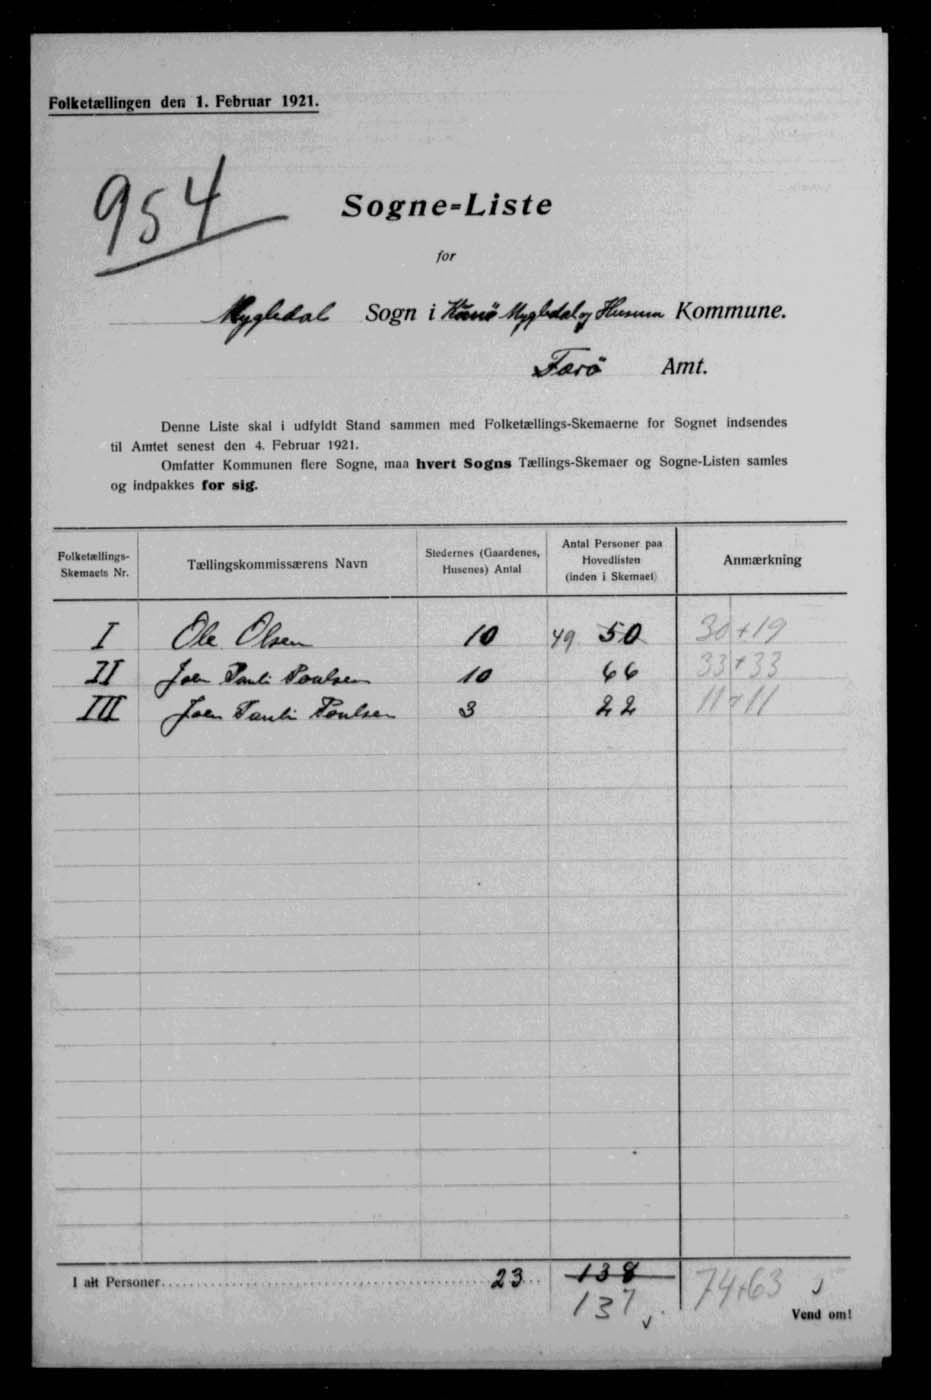 Folketællingen den 1. Februar 1921.
954
Sogne-Liste
for
Mygledal Sogn i Kunø Mygledal og Husum Kommune.
Færö Amt.
Denne Liste skal i udfyldt Stand sammen med Folketællings-Skemaerne for Sognet indsendes
til Amtet senest den 4. Februar 1921.
Omfatter Kommunen flere Sogne, maa hvert Sogns Tællings-Skemaer og Sogne-Listen samles
og indpakkes for sig.
Folketællings-
Skemaets Nr.
Tællingskommissærens Navn
Stedernes (Gaardenes,
Husenes) Antal
Antal Personer paa
Hovedlisten
(inden i Skemaet)
Anmærkning
I Ole Olsen 10 49 50 30+19
II Joen Pauli Poulsen 10 66 33+33
III Joen Pauli Poulsen 3 22 11+11
I alt Personer 23 138 74+63
137
Vend om!